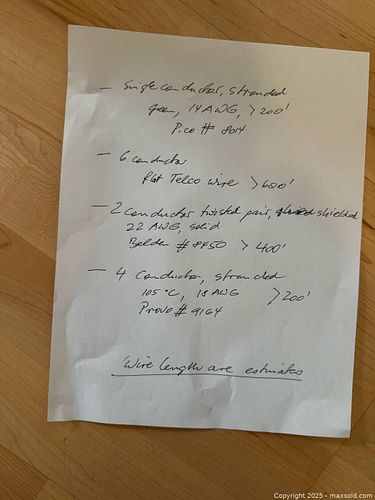 — Single conductor, stranded
green, 14 AWG, > 200'
Pico # 8014
— 6 conductor
flat Telco wire > 600'
— 2 conductor twisted pair, shielded
22 AWG, solid
Belden # 8450 > 400'
— 4 conductor, stranded
105 °C, 18 AWG > 200'
Provo # 9164
Wire length are estimates
Copyright 2025 - maxsold.com